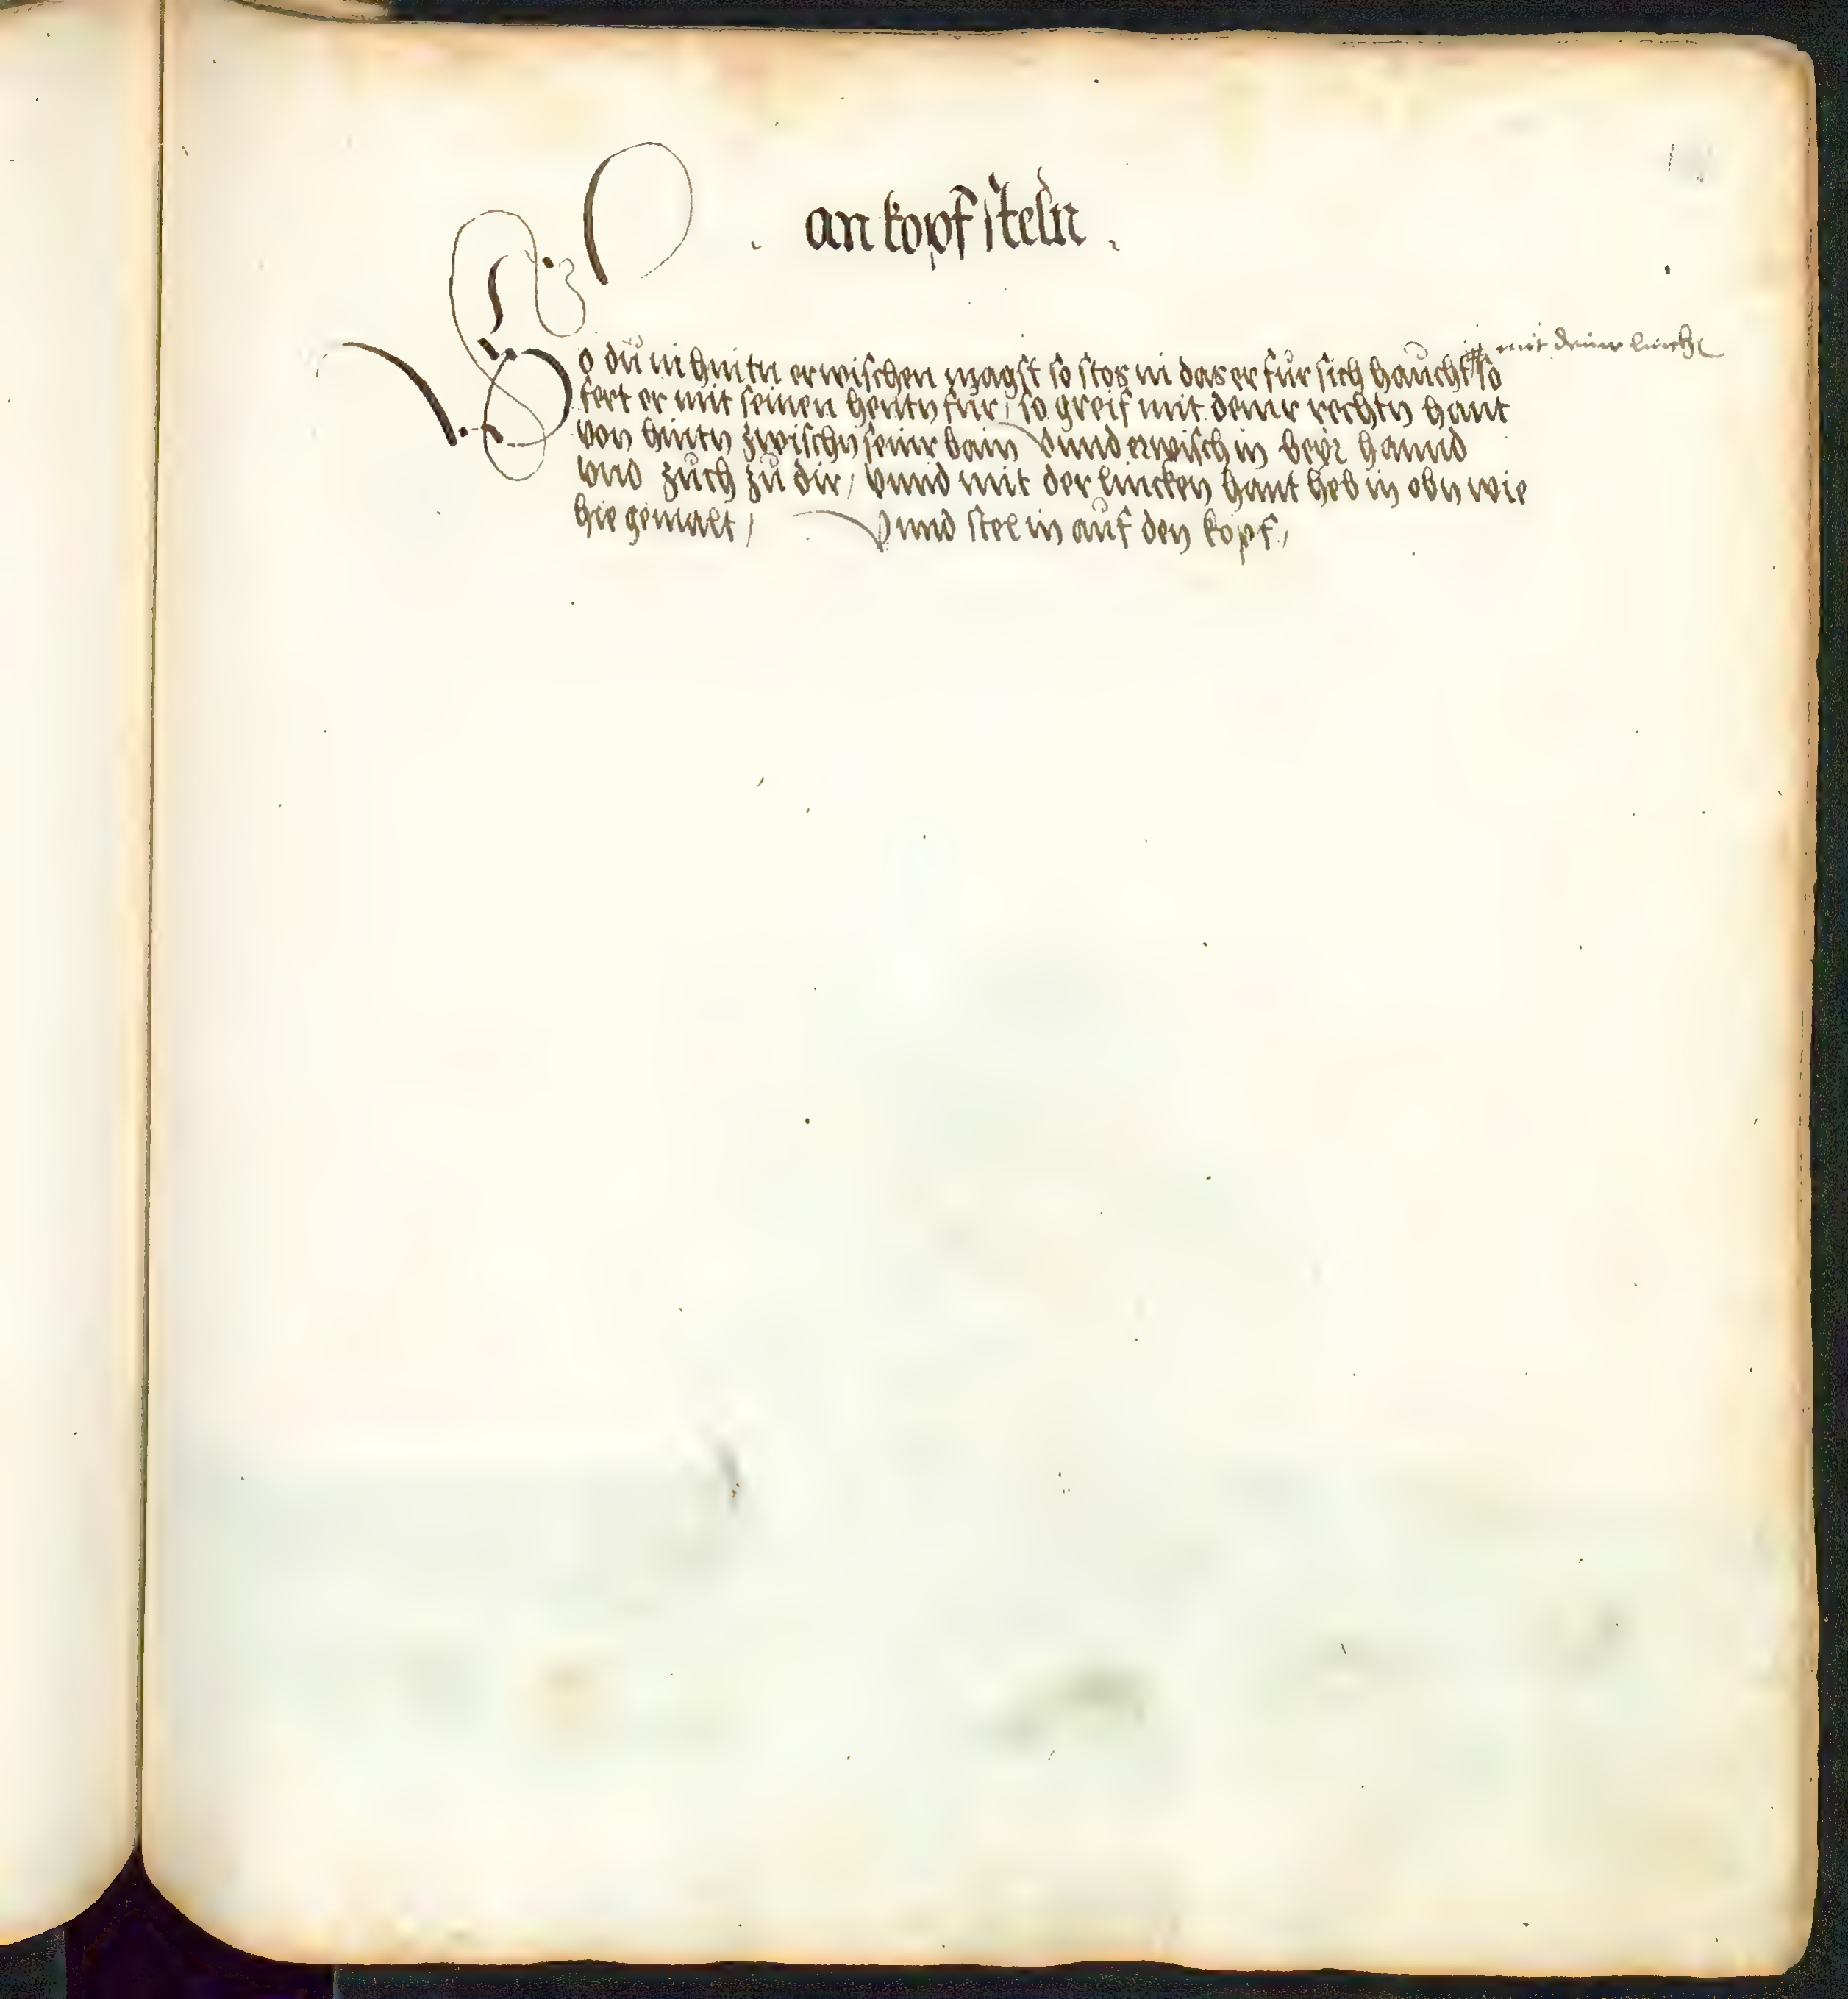 an kopf steln
mit deiner linckh
So du in hintn erwischen magst so stos in das er fur sich haucht so
fert er mit seinen hentn fur / so greif mit deinr rechtn hant
von hintn zwischn seinr bain Vnnd erwisch in beyr hannd
vnd zuch zu dir / vnnd mit der lincken hant heb in obn wie
hie gemalt / Vnnd stel in auf den kopf /